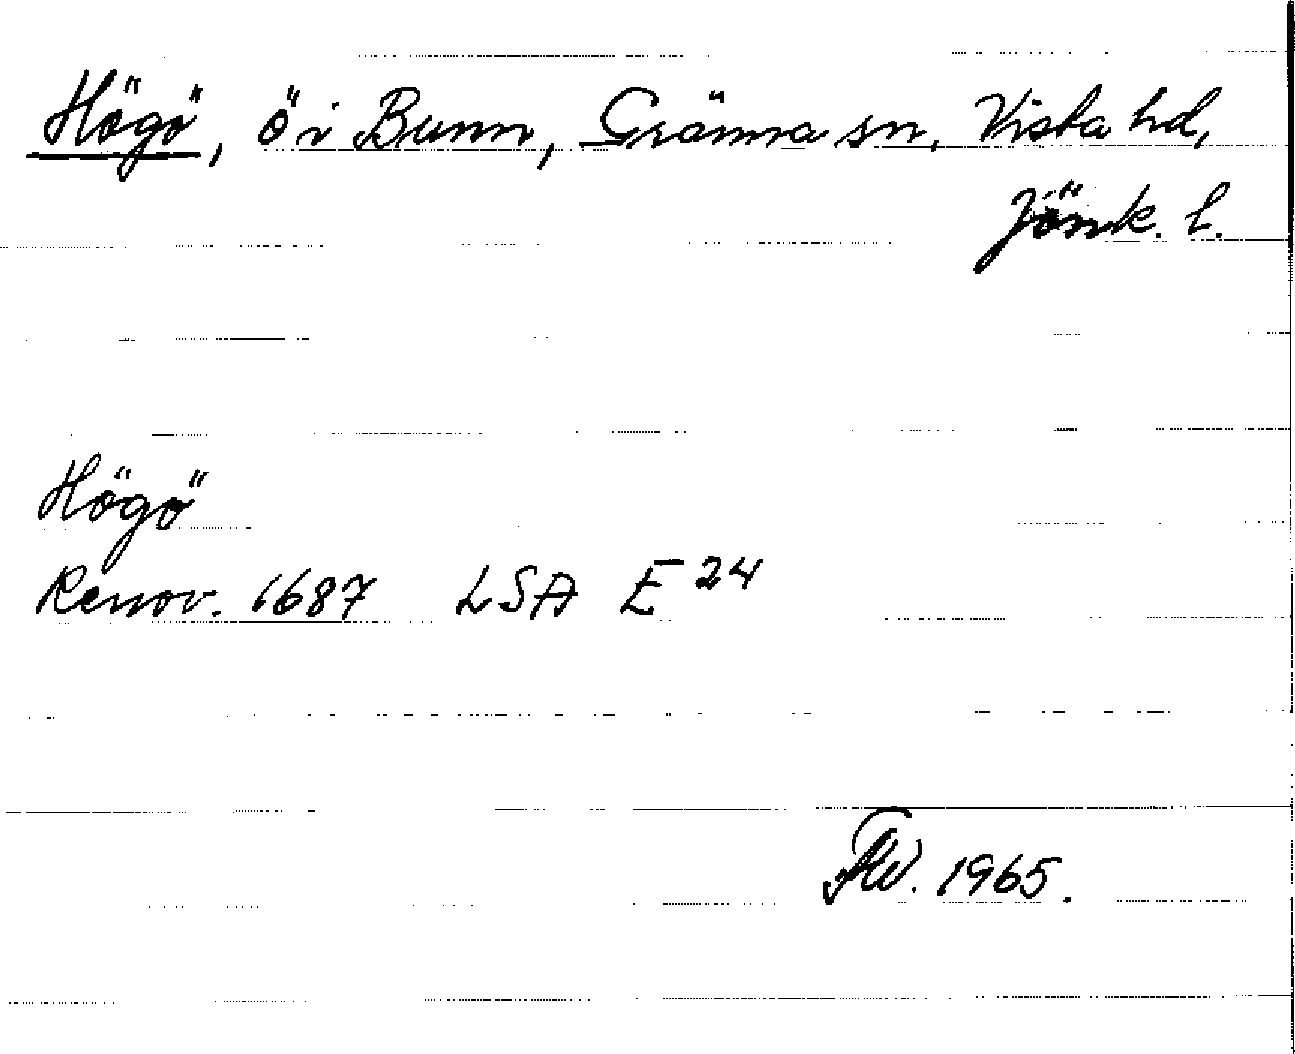 Högö, ö i Bunn, Gränna sn, Vista hd,
Jönk. l.
Högö
Renov. 1687 LSA E 24
1965.